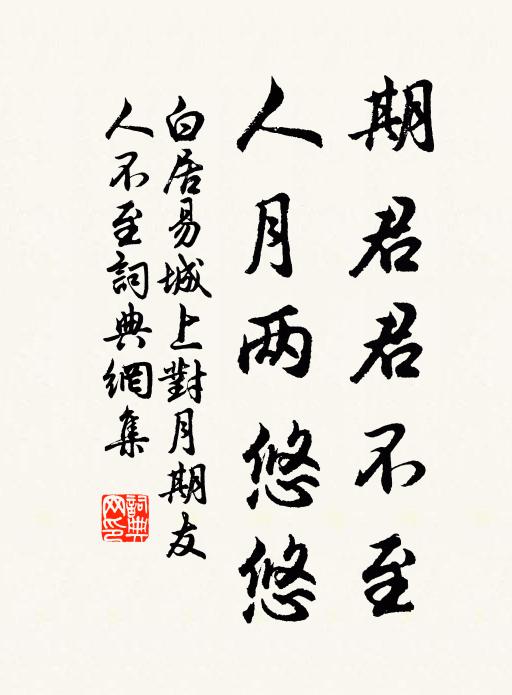 期君君不至
人月两悠悠
白居易城上對月期友
人不至詞典網集
詞典
网印